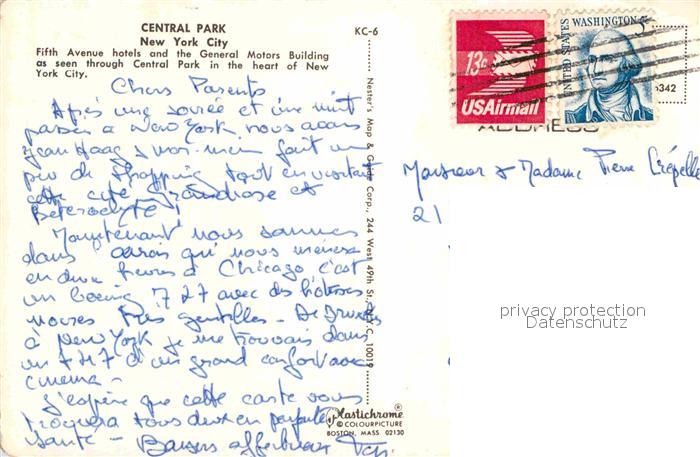 CENTRAL PARK
New York City
KC-6
Fifth Avenue hotels and the General Motors Building
as seen through Central Park in the heart of New
York City.
Chers Parents
Après une soirée et une nuit
passée à New York, nous avons
Jean Haag & moi-même fait un
peu de shopping tout en visitant
cette cité grandiose et
Heteroclyte!
Maintenant nous sommes
dans l'avion qui nous mènera
en deux heures à Chicago c'est
un boeing 727 avec des hôtesses
noires très gentilles - De Bruxelles
à New York je me trouvais dans
un 747 d'un grand confort avec
cinema -
J'espère que cette carte vous
trouvera tous deux en parfaite
santé - Baisers affectueux
Nester's Map & Guide Corp., 244 West 49th St., N.Y.C. 10019
Plastichrome®
© COLOURPICTURE
BOSTON, MASS 02130
13¢
USAirmail
UNITED STATES
WASHINGTON
5¢
342
ADDRESS
Monsieur & Madame Pierre Crépelle
21
privacy protection
Datenschutz